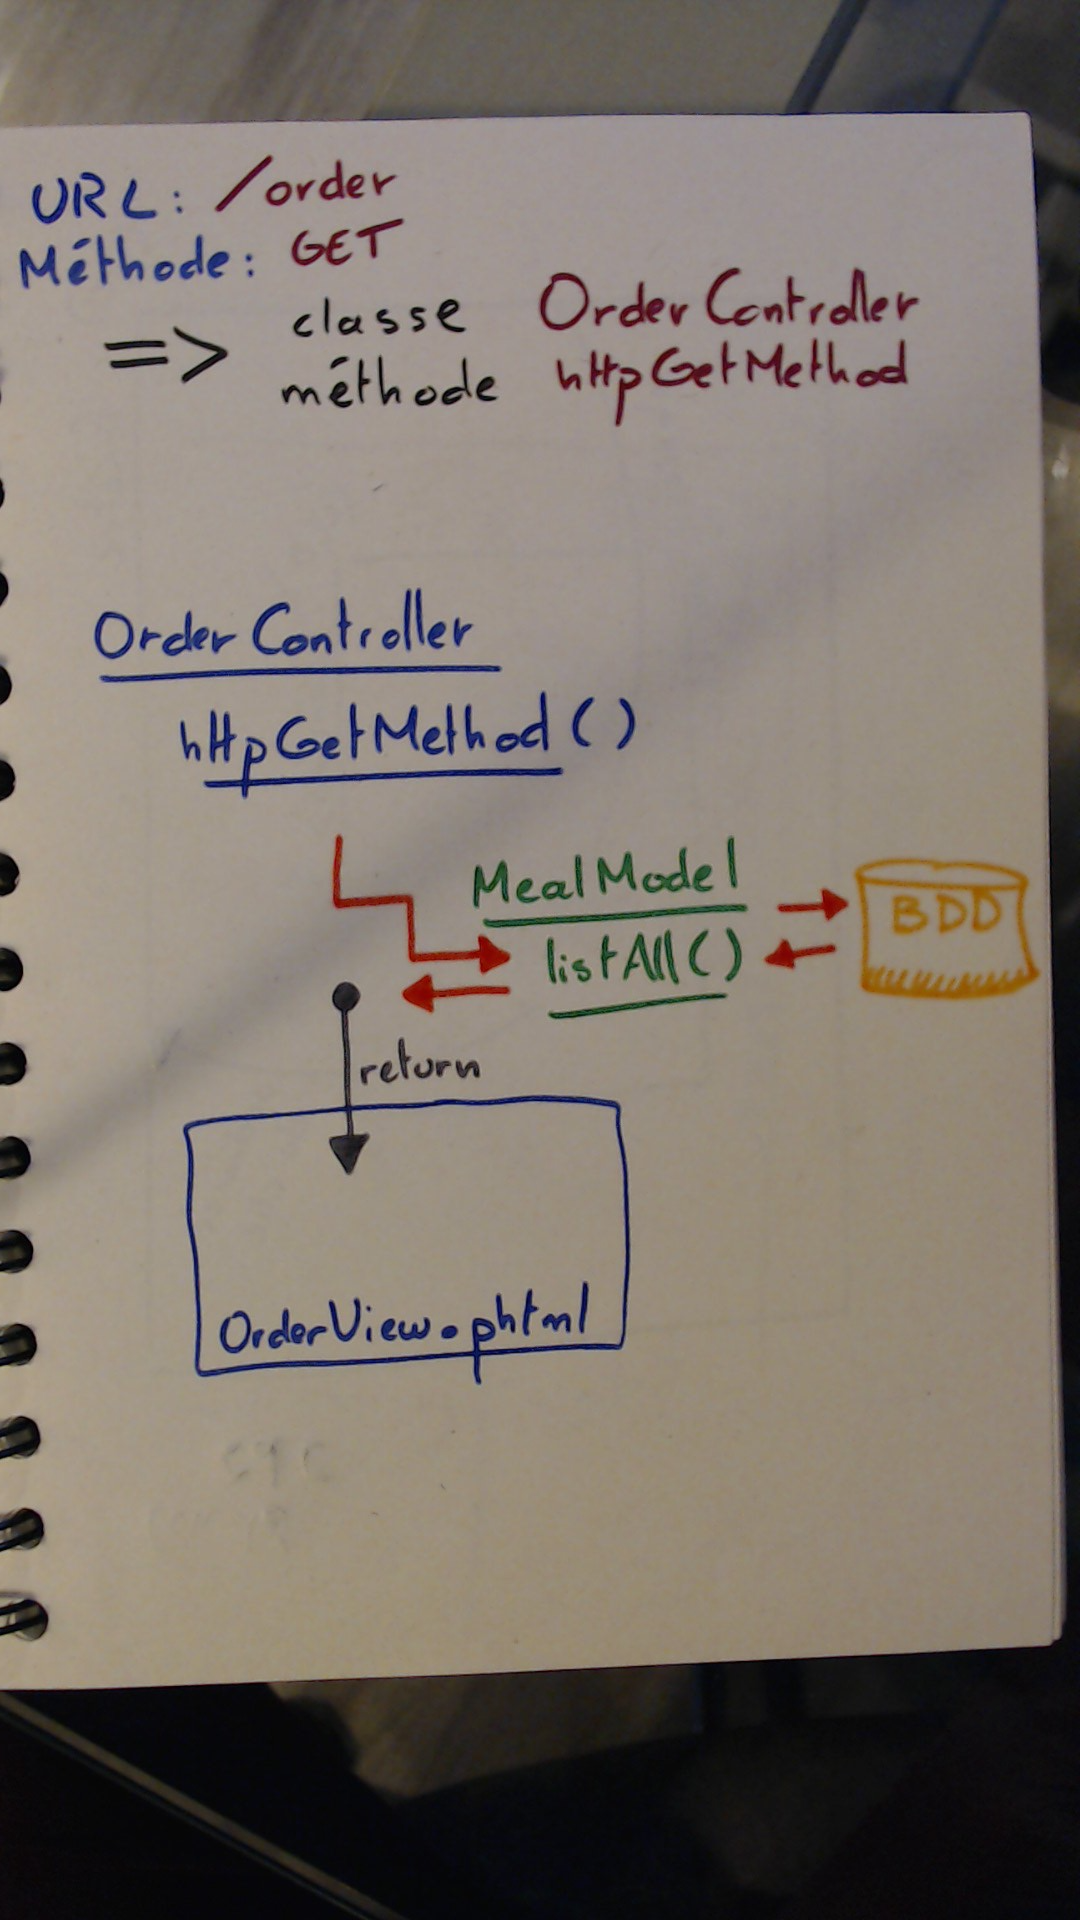 URL: /order
Méthode: GET
=> classe OrderController
méthode httpGetMethod
OrderController
httpGetMethod()
MealModel
BDD
listAll()
return
OrderView.phtml